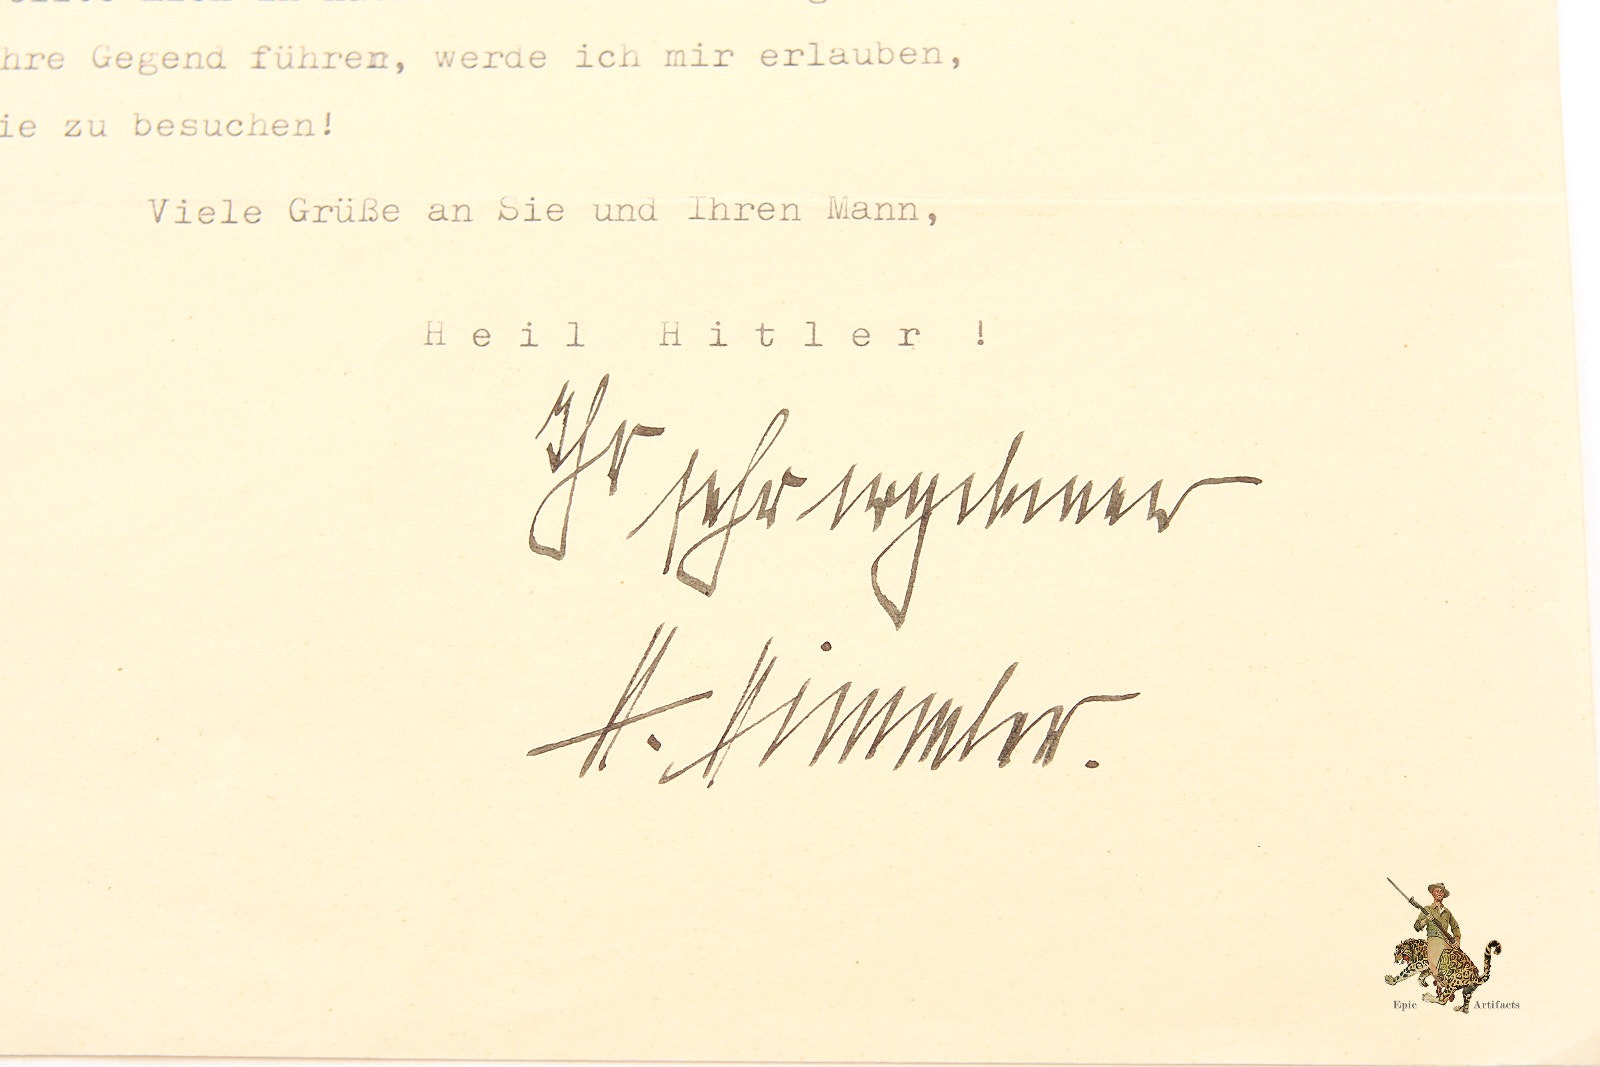 hre Gegend führen, werde ich mir erlauben,
ie zu besuchen!
Viele Grüße an Sie und Ihren Mann,
Heil Hitler !
Ihr sehr ergebener
H. Himmler.
Epic Artifacts